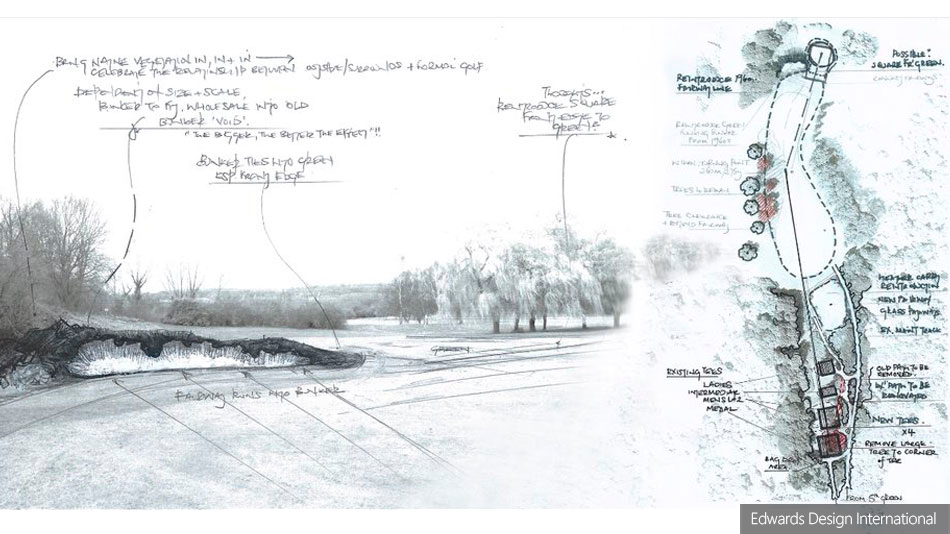 BRING NATIVE VEGETATION IN, IN + IN
CELEBRATE THE RELATIONSHIP BETWEEN OUTSIDE/SURROUNDS + FORMAL GOLF
DEPENDENT OF SIZE + SCALE,
BUNKER TO FIT, WHOLESALE INTO OLD
BUNKER 'VOID'.
"THE BIGGER, THE BETTER THE EFFECT"!!
BUNKER TIES INTO GREEN
ESP FRONT EDGE
THOUGHTS...
REINTRODUCE SQUARE
FRONT EDGE TO
GREEN?
GREEN
FAIRWAY RUNS INTO BUNKER
POSSIBLE
SQUARE FR. GREEN.
REINTRODUCE 1960.
FAIRWAY LINE
FROM 1960s
TURNING POINT
TREES
TREE CLEARANCE
+ BEYOND FAIRWAY
REINTRODUCTION
GRASS
EX. MAINT TRACK
EXISTING TEES
LADIES
INTERMEDIATE
MENS 1 & 2
MEDAL
OLD PATH TO BE
REMOVED.
PATH TO BE
RENOVATED
NEW TEES.
X4
REMOVE LARGE
TREE TO CORNER
of TEE
BAG DROP
AREA
FROM 5th GREEN
Edwards Design International